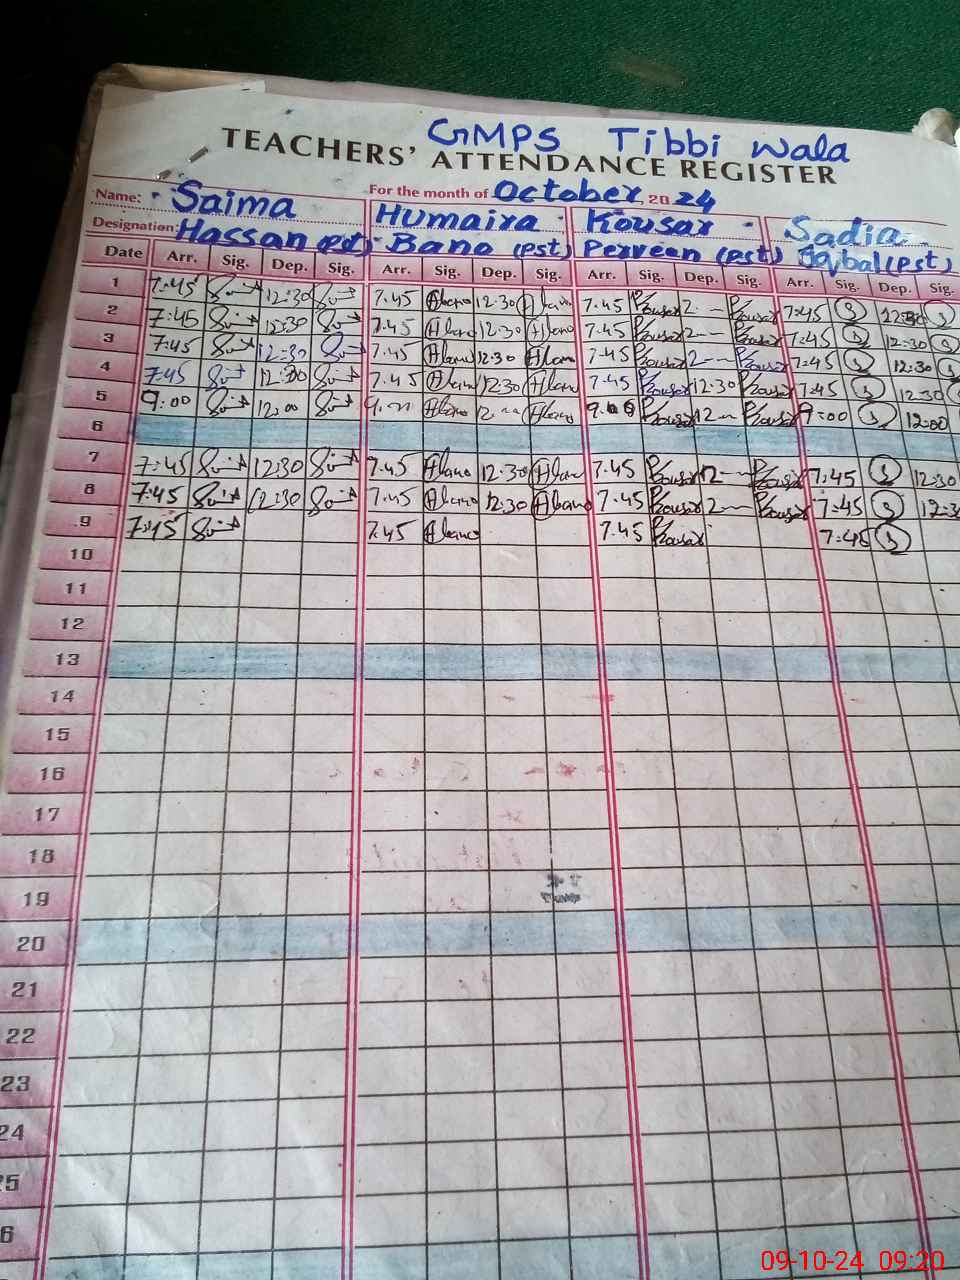 GMPS Tibbi Wala
TEACHERS' ATTENDANCE REGISTER
For the month of October 2024
Name: Saima Humaira Kousar Sadia
Designation: Hassan (Pst) Bano (Pst) Perveen (Pst) Iqbal (Pst)
Date Arr. Sig. Dep. Sig. Arr. Sig. Dep. Sig. Arr. Sig. Dep. Sig. Arr. Sig. Dep. Sig.
1 7:45 12:30 7.45 Hbano 12:30 Hbano 7.45 Pkousar Pkousar 7:45 12:30
2 7:45 12:30 7.45 Hbano 12:30 Hbano 7.45 Pkousar 2 Pkousar 7:45 12:30
3 7:45 12:30 7.45 Hbano 12:30 Hbano 7.45 Pkousar 2 Pkousar 7:45 12:30
4 7:45 12:30 7.45 Hbano 12:30 Hbano 7.45 Pkousar 12:30 Pkousar 7:45 12:30
5 9:00 12:00 9. Hbano 12 Hbano 9.00 Pkousar 12 Pkousar 9:00 12:00
6
7 7:45 12:30 7.45 Hbano 12:30 Hbano 7.45 Pkousar 12 Pkousar 7:45 12:30
8 7:45 12:30 7.45 Hbano 12:30 Hbano 7.45 Pkousar 2 Pkousar 7:45 12:3
9 7:45 7.45 Hbano 7.45 Pkousar 7:45
10
11
12
13
14
15
16
17
18
19
20
21
22
23
24
25
6
09-10-24 09:20